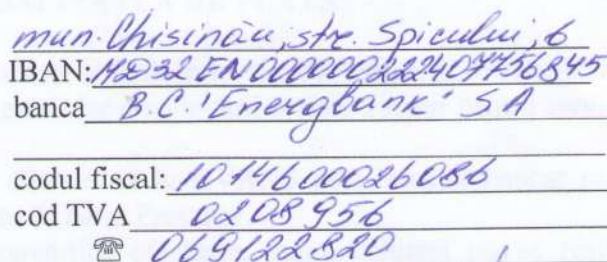 mun. Chisinău, str. Spicului, 6
IBAN: MD32EN000000222407756845
banca B.C 'Energbank' SA
codul fiscal: 1014600026086
cod TVA 0208956
☎ 069122820